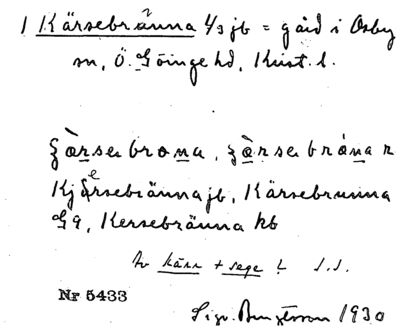 1 Kärsebränna 4/3 jb = gård i Osby
sn, Ö. Göinge hd, Krist. l.
ʒærse brona, ʒærse bronar
Kjersebränna jb, Kärsebrunna
Gä, Kersebränna kb
Av kärr + sege? S.S.
Nr 5433
Sigv. Bengtsson 1930